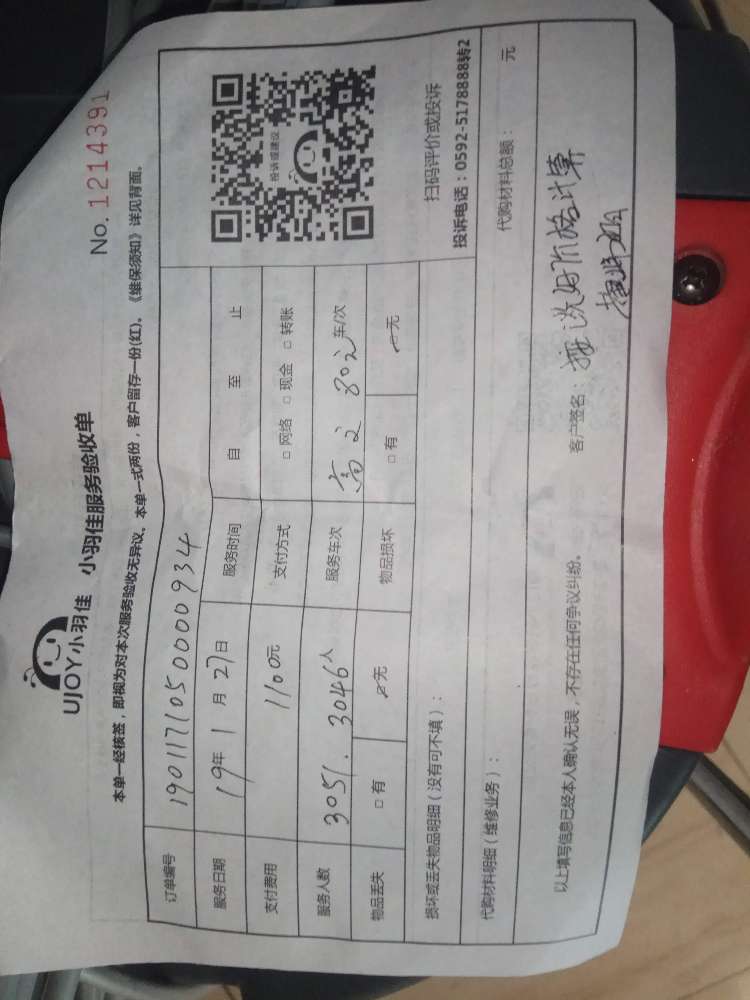 UJOY小羽佳 小羽佳服务验收单
No. 1214391
本单一经核签，即视为对本次服务验收无异议。本单一式两份，客户留存一份(红)。《维保须知》详见背面。
订单编号 1901171050000934
服务日期 19年 1 月 27日 服务时间 自 至 止
支付费用 1100元 支付方式 □ 网络 □ 现金 □ 转账
服务人数 3051. 3046人 服务车次 车/次
物品丢失 □ 有 □ 无 物品损坏 □ 有 □ 无
投诉或建议
扫码评价或投诉
投诉电话：0592-5178888转2
损坏或丢失物品明细（没有可不填）：
代购材料明细（维修业务）： 代购材料总额： 元
以上填写信息已经本人确认无误，不存在任何争议纠纷。 客户签名：
按说好价格计算